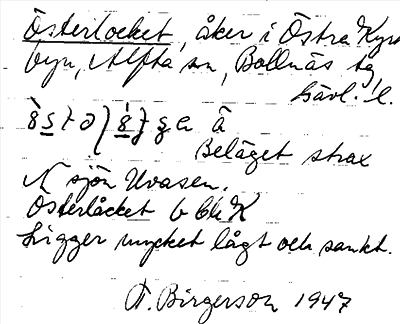 Österlocket, åker i Östra Kyrk
byn, Alfta sn, Bollnäs tg,
Gävl. l.
å
Beläget strax
N sjön Uvasen.
Österlåcket
Ligger mycket lågt och sankt.
A. Birgerson 1947